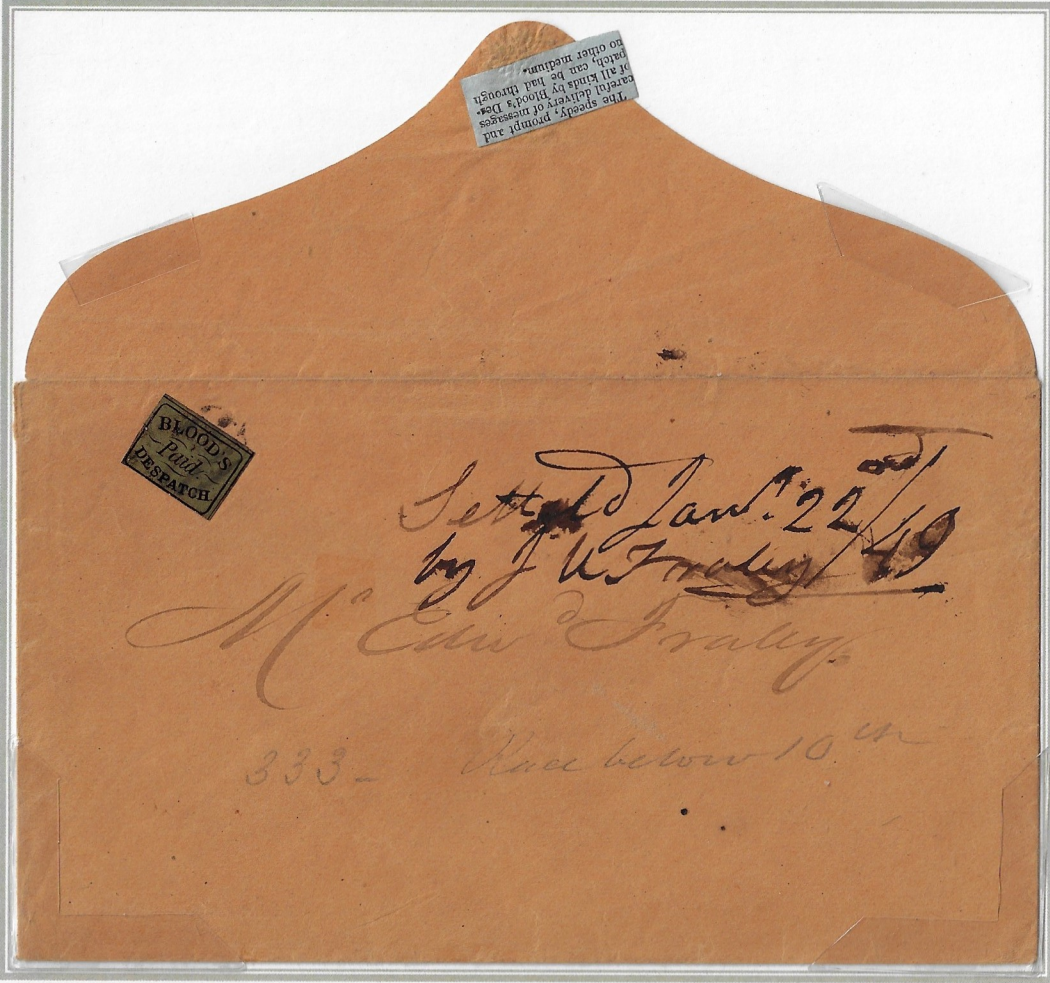 The speedy, prompt and
careful delivery of messages
of all kinds by Blood's Des-
patch, can be had through
no other medium.
BLOOD'S
Paid
DESPATCH
Setteld Jany. 22nd/49
by J U Fraley
Mr Edwd Fraley
333- Race below 10th